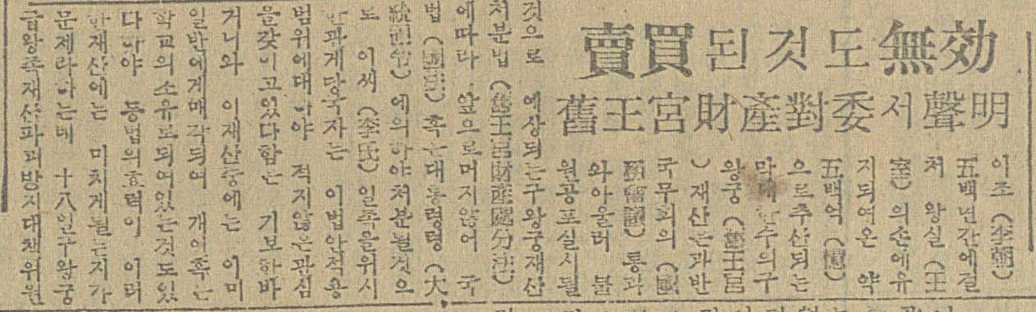 賣買된것도無効
舊王宮財產對委서聲明
이조(李朝)
五백년간에걸
처 왕실(王
室)의손에유
지되여온 약
五백억(億)
으로추산되는
막대한수의구
왕궁(舊王宮
)재산은과반
국무회의(國
務會議)통과
와아울러 불
원공포실시될
것으로 예상되는구왕궁재산
처분법(舊王宮財產處分法)
에따라 앞으로머지않어 국
법(國法)혹은대통령령(大
統領令)에의하야처분될것으
로 이씨(李氏)일족을위시
한관계당국자는 이법안적용
범위에대하야 적지않은관심
을갖이고있다함은 기보한바
거니와 이재산중에는 이미
일반에게매각되여 개인혹은
학교의소유로되여있는것도있
다하야 동법의효력이 이러
한재산에는 미치게될는지가
문제라하는데 十八일구왕궁
급왕족재산파괴방지대책위원